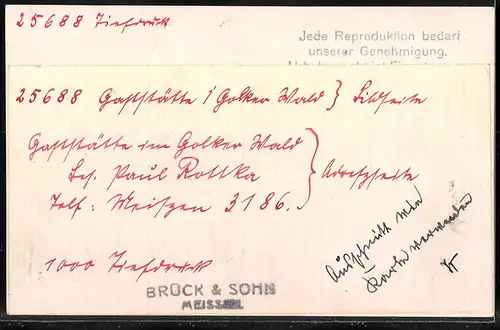 25688 Tiefdruck
Jede Reproduktion bedarf
unserer Genehmigung.
25688 Gaststätte i/ Golker Wald } Bildseite
Gaststätte im Golker Wald
Bes. Paul Rottka } Adreßseite
Telf: Meißen 3186.
Ausschnitt wie
Karte verwenden
1000 Tiefdruck
BRÜCK & SOHN
MEISSEN